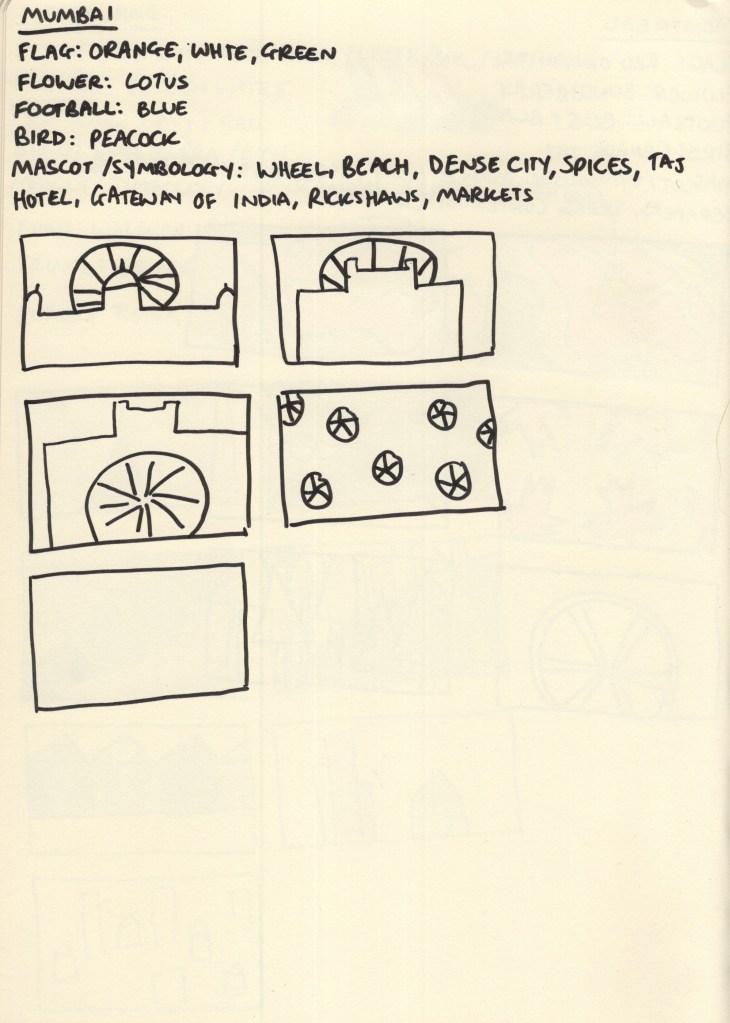 MUMBAI
FLAG: ORANGE, WHITE, GREEN
FLOWER: LOTUS
FOOTBALL: BLUE
BIRD: PEACOCK
MASCOT /SYMBOLOGY: WHEEL, BEACH, DENSE CITY, SPICES, TAJ
HOTEL, GATEWAY OF INDIA, RICKSHAWS, MARKETS